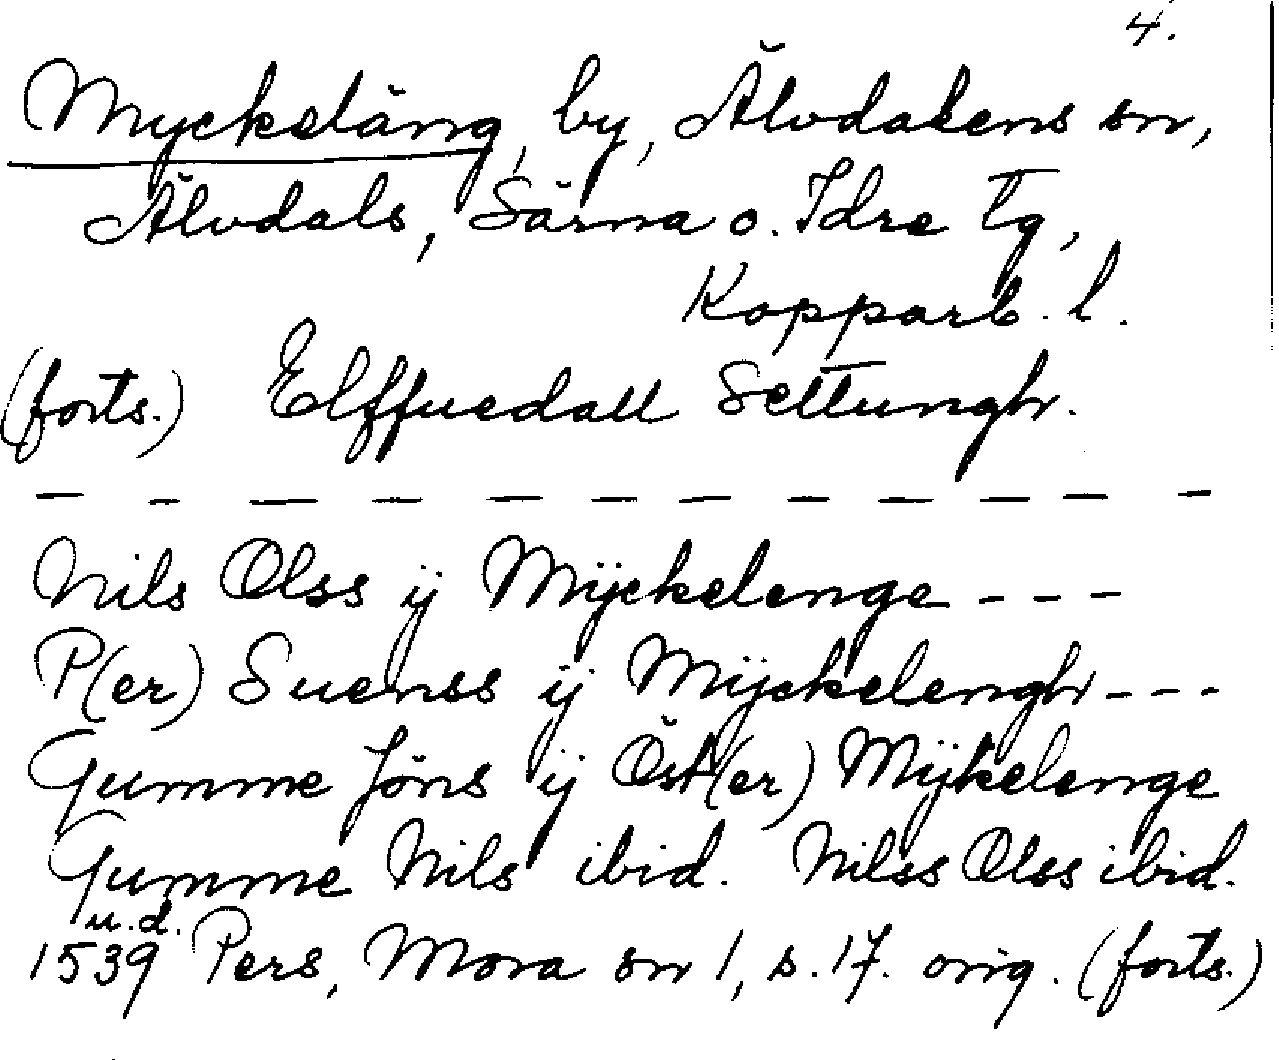 4.
Myckeläng, by, Älvdalens sn,
Älvdals, Särna o. Idre tg,
Kopparb. l.
(forts.) Elffuedall Settungh.
— — — — — — — — — — — —
Nils Olss ÿ Mÿckelenge - - -
P(er) Suenss ÿ Mÿckelengh - - -
Gumme Jöns ÿ Öst(er) Mÿkelenge
Gumme Nils ibid. Nilss Olss ibid.
u.d.
1539 Pers, Mora sn 1, s. 17. orig. (forts.)